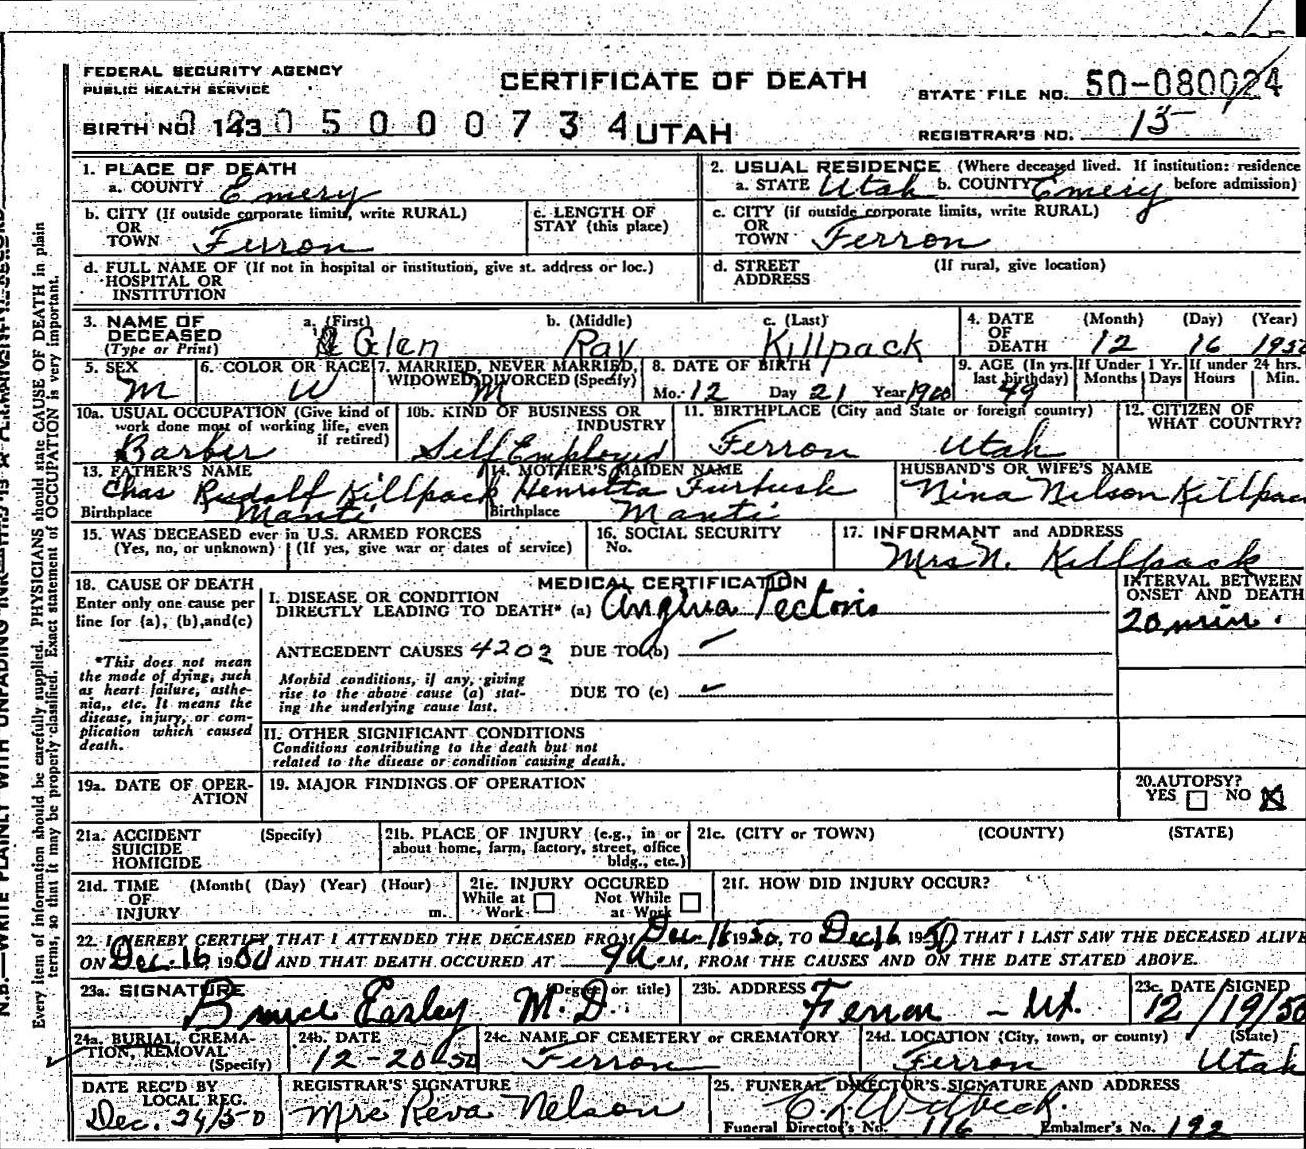 FEDERAL SECURITY AGENCY
PUBLIC HEALTH SERVICE
CERTIFICATE OF DEATH
STATE FILE NO. 50-080024
BIRTH NO. 143 0 5 0 0 0 7 3 4 UTAH
REGISTRAR'S NO. 15
1. PLACE OF DEATH
a. COUNTY Emery
2. USUAL RESIDENCE (Where deceased lived. If institution: residence
a. STATE Utah b. COUNTY Emery before admission)
b. CITY (If outside corporate limits, write RURAL)
OR
TOWN Ferron
c. LENGTH OF
STAY (this place)
c. CITY (if outside corporate limits, write RURAL)
OR
TOWN Ferron
d. FULL NAME OF (If not in hospital or institution, give st. address or loc.)
HOSPITAL OR
INSTITUTION
d. STREET (If rural, give location)
ADDRESS
3. NAME OF DECEASED
(Type or Print)
a. (First) b. (Middle) c. (Last)
Glen Ray Killpack
4. DATE OF DEATH
(Month) (Day) (Year)
12 16 1950
5. SEX
M
6. COLOR OR RACE
W
7. MARRIED, NEVER MARRIED,
WIDOWED, DIVORCED (Specify)
M
8. DATE OF BIRTH
Mo. 12 Day 21 Year 1900
9. AGE (In yrs. last birthday) 49
If Under 1 Yr. Months Days
If under 24 hrs. Hours Min.
10a. USUAL OCCUPATION (Give kind of
work done most of working life, even
if retired)
Barber
10b. KIND OF BUSINESS OR
INDUSTRY
Self Employed
11. BIRTHPLACE (City and State or foreign country)
Ferron Utah
12. CITIZEN OF
WHAT COUNTRY?
13. FATHER'S NAME
Chas Rudolf Killpack
Birthplace Manti
14. MOTHER'S MAIDEN NAME
Henretta Furbush
Birthplace Manti
HUSBAND'S OR WIFE'S NAME
Nina Nelson Killpac
15. WAS DECEASED ever in U.S. ARMED FORCES
(Yes, no, or unknown) (If yes, give war or dates of service)
16. SOCIAL SECURITY
No.
17. INFORMANT and ADDRESS
Mrs N. Killpack
18. CAUSE OF DEATH
Enter only one cause per
line for (a), (b), and (c)
*This does not mean
the mode of dying, such
as heart failure, asthe-
nia, etc. It means the
disease, injury, or com-
plication which caused
death.
MEDICAL CERTIFICATION
I. DISEASE OR CONDITION
DIRECTLY LEADING TO DEATH* (a) Angina Pectoris
ANTECEDENT CAUSES 4202 DUE TO (b)
Morbid conditions, if any, giving
rise to the above cause (a) stat-
ing the underlying cause last.
DUE TO (c)
II. OTHER SIGNIFICANT CONDITIONS
Conditions contributing to the death but not
related to the disease or condition causing death.
INTERVAL BETWEEN
ONSET AND DEATH
20 min.
19a. DATE OF OPER-
ATION
19. MAJOR FINDINGS OF OPERATION
20. AUTOPSY?
YES NO X
21a. ACCIDENT (Specify)
SUICIDE
HOMICIDE
21b. PLACE OF INJURY (e.g., in or
about home, farm, factory, street, office
bldg., etc.)
21c. (CITY or TOWN) (COUNTY) (STATE)
21d. TIME (Month) (Day) (Year) (Hour)
OF
INJURY m.
21e. INJURY OCCURED
While at Work Not While at Work
21f. HOW DID INJURY OCCUR?
22. I HEREBY CERTIFY THAT I ATTENDED THE DECEASED FROM Dec 16 1950, TO Dec 16, 1950 THAT I LAST SAW THE DECEASED ALIVE
ON Dec. 16, 1950 AND THAT DEATH OCCURED AT 9 A.M, FROM THE CAUSES AND ON THE DATE STATED ABOVE.
23a. SIGNATURE (Degree or title)
Bruce Easley M.D.
23b. ADDRESS
Ferron - Ut.
23c. DATE SIGNED
12/19/50
24a. BURIAL, CREMA-
TION, REMOVAL
(Specify)
24b. DATE
12-20-50
24c. NAME OF CEMETERY or CREMATORY
Ferron
24d. LOCATION (City, town, or county) (State)
Ferron Utah
DATE REC'D BY
LOCAL REG.
Dec. 24/50
REGISTRAR'S SIGNATURE
Mrs Reva Nelson
25. FUNERAL DIRECTOR'S SIGNATURE AND ADDRESS
Funeral Director's No. 116 Embalmer's No. 192
Every item of information should be carefully supplied. PHYSICIANS should state CAUSE OF DEATH in plain
terms, so that it may be properly classified. Exact statement of OCCUPATION is very important.
N.B.—WRITE PLAINLY WITH UNFADING INK—THIS IS A PERMANENT RECORD